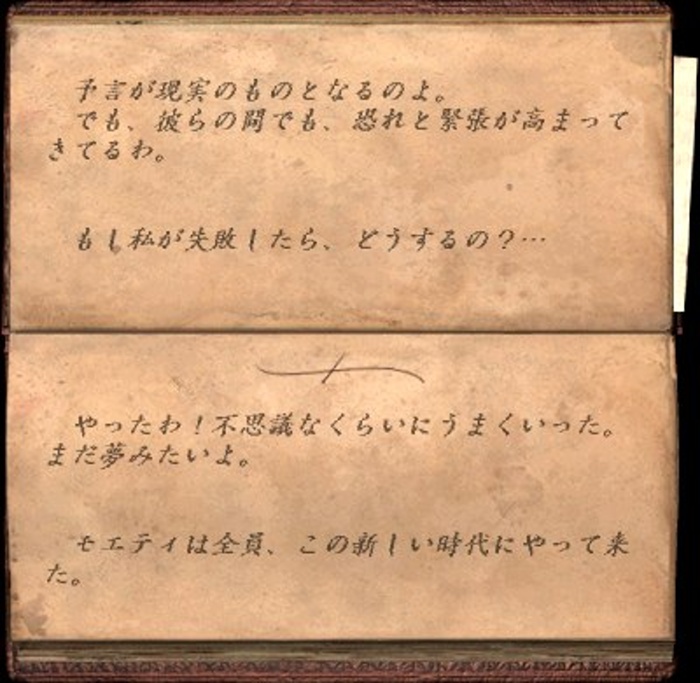 予言が現実のものとなるのよ。
でも、彼らの間でも、恐れと緊張が高まって
きてるわ。
もし私が失敗したら、どうするの？…
やったわ！不思議なくらいにうまくいった。
まだ夢みたいよ。
モエティは全員、この新しい時代にやって来
た。